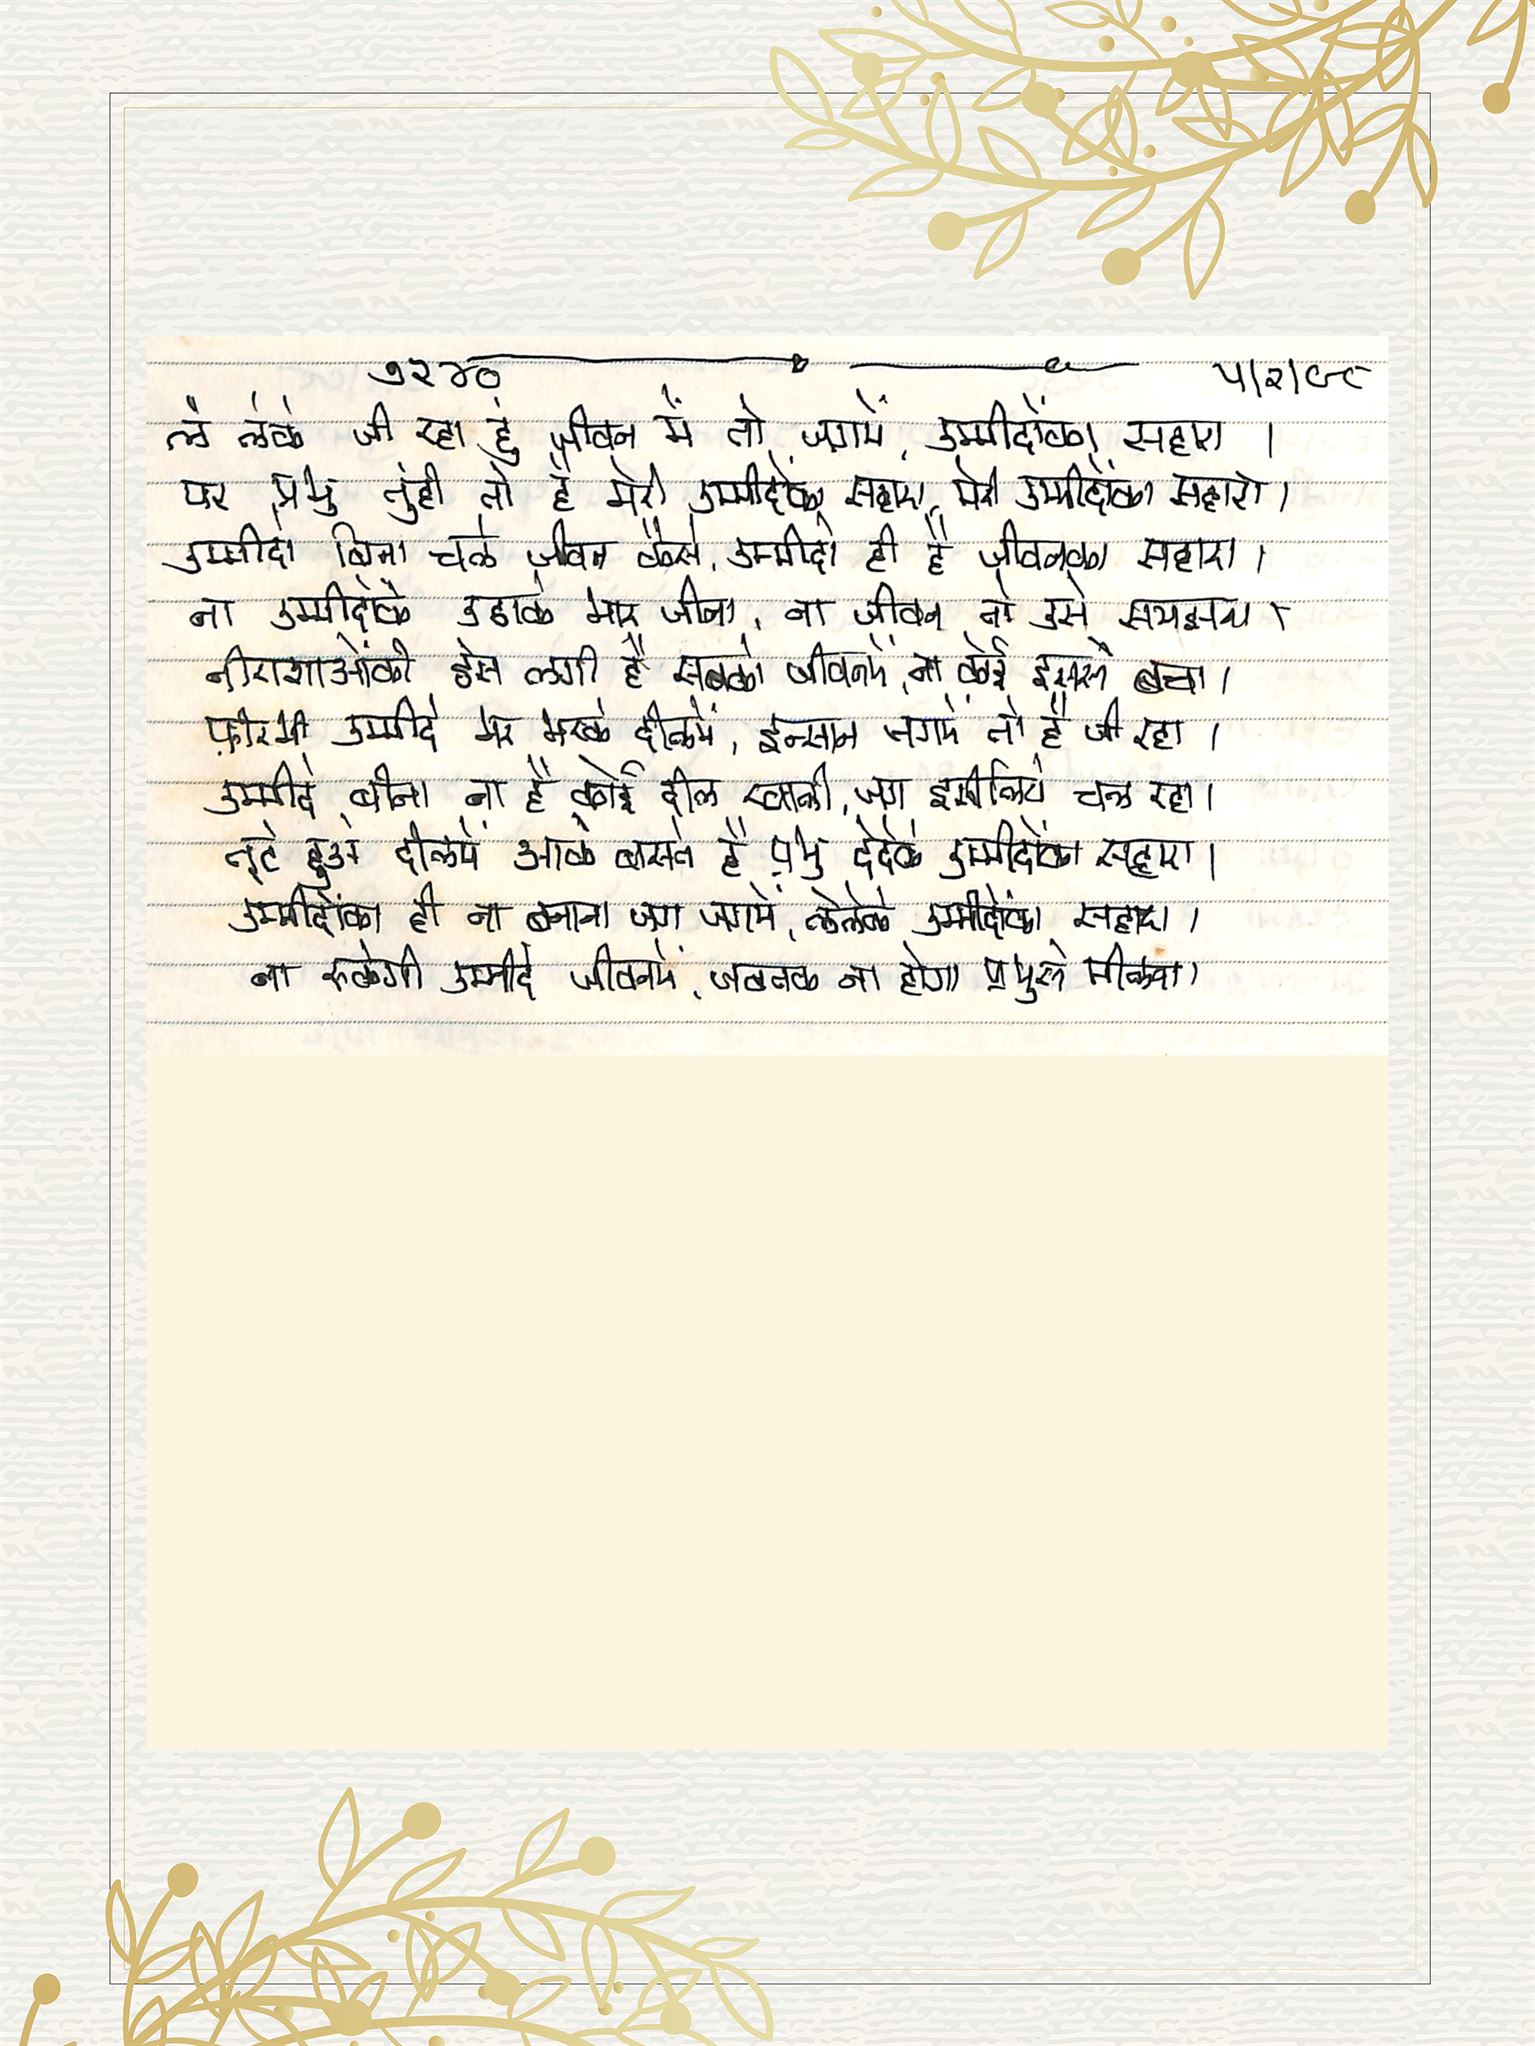 ७२४० ५/२/८९
ले लेके जी रहा हुं जीवन में तो जगमें, उम्मीदोंका सहारा ।
पर प्रभु तुंही तो है मेरी उम्मीदोंका सहारा, मेरी उम्मीदोंका सहारो ।
उम्मीदो बिना चले जीवन कैसे, उम्मीदो ही है जीवनका सहारा ।
ना उम्मीदोके उठाके भार जीना, ना जीवन तो उसे समझना ।
नीराशाओंकी ठेस लगी है सबको जीवनमें, ना कोई इससे बचा ।
फ़ीरभी उम्मीदे भर भरके दीलमें, इन्सान जगमें तो है जी रहा ।
उम्मीदे बीना ना है कोई दील खाली, जग इसीलिये चल रहा ।
तूटे हुअे दीलमें आके बसते है प्रभु देदेके उम्मीदोंका सहारा ।
उम्मीदोंका ही ना बनाना जग जगमें, लेलेके उम्मीदोंका सहारा ।
ना रुकेगी उम्मीदे जीवनमें, जबतक ना होगा प्रभुसे मीलना ।